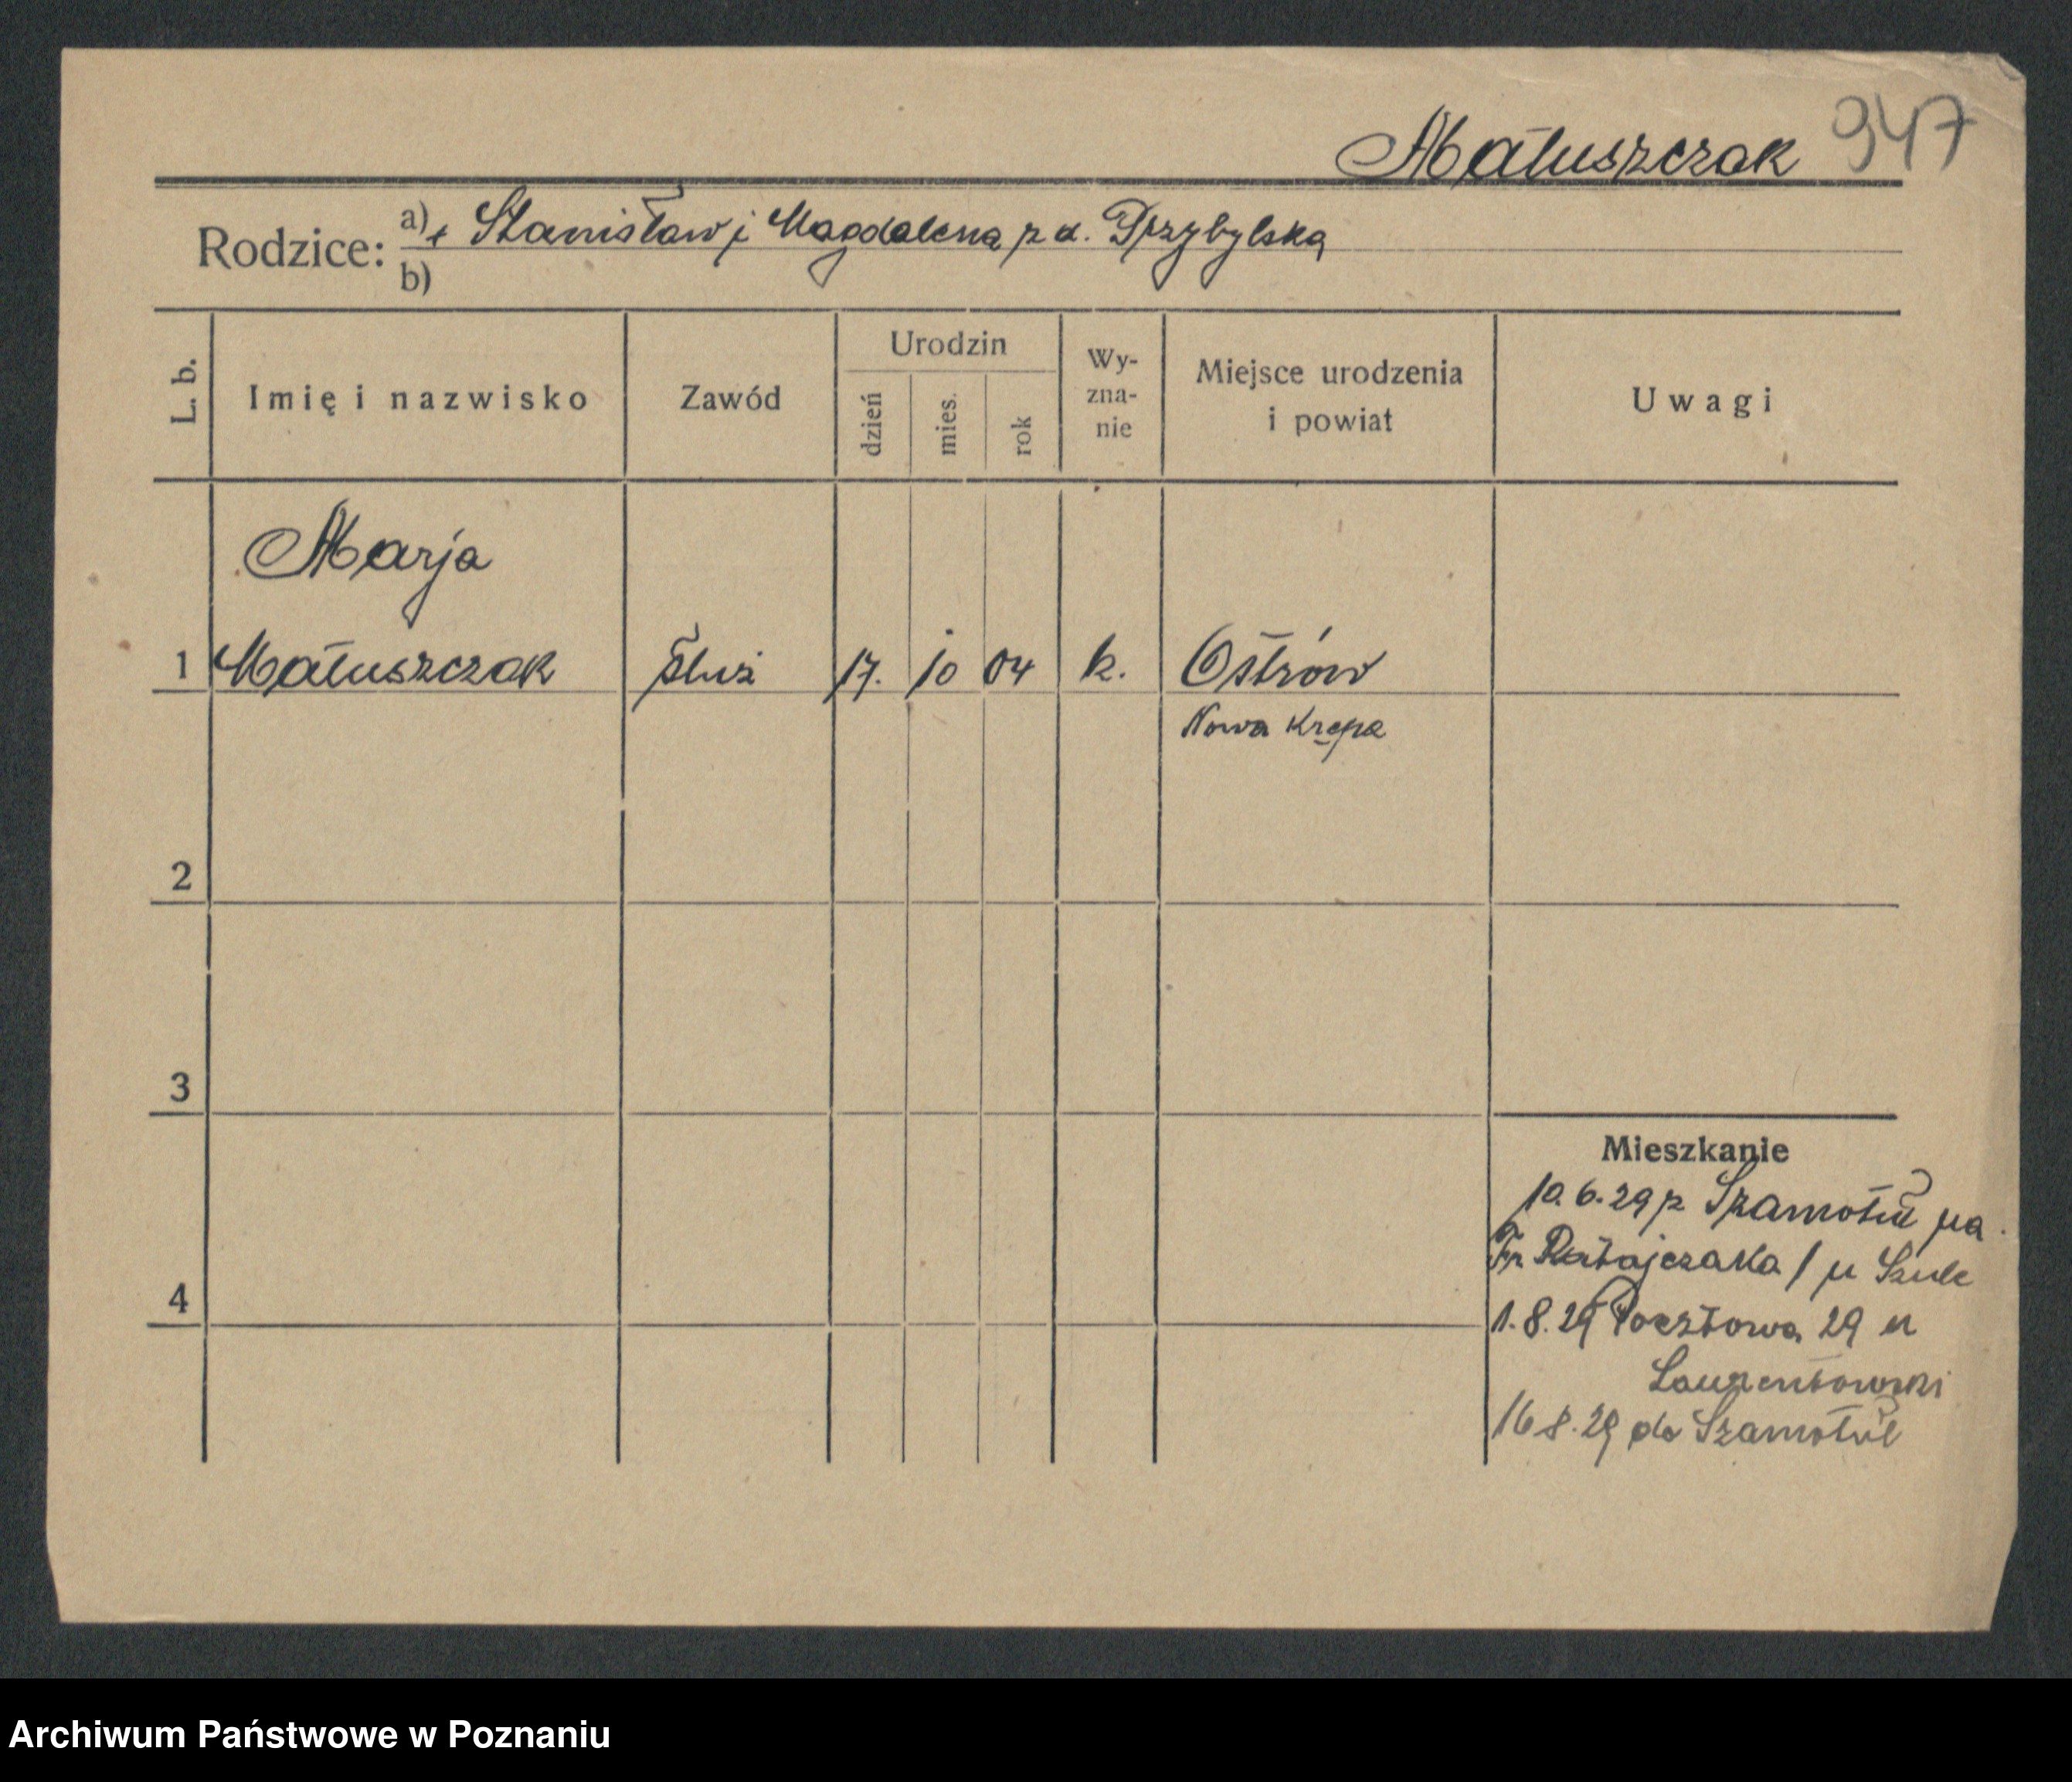 Matuszczak 947
Rodzice: a) Stanisław i Magdalena z d. Przybylska
b)
L. b. Imię i nazwisko Zawód Urodzin dzień mies. rok Wyznanie Miejsce urodzenia i powiat Uwagi
Marja
1 Matuszczak służ 17. 10 04 k. Ostrów
Nowa Krępa
2
3
Mieszkanie
10.6.29 z Szamotuł na
Fr Ratajczaka / u Szulc
4
1.8.29 Pocztowa 29 u
Laurentowski
16 8.29 do Szamotuł
Archiwum Państwowe w Poznaniu